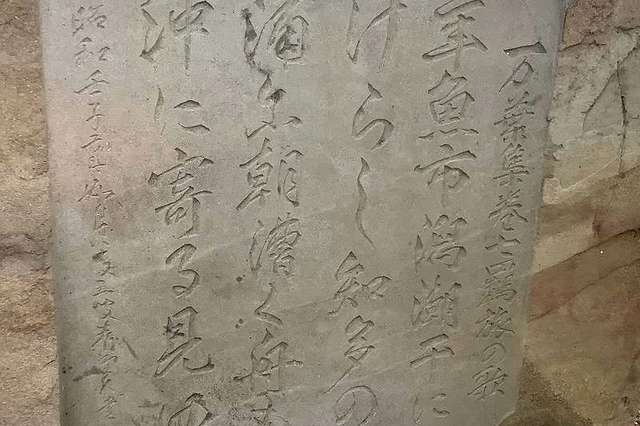 万葉集巻七羈旅の歌
年魚市潟潮干に
けらし知多の
浦尓朝漕く舟も
沖に寄る見ゆ
昭和壬子